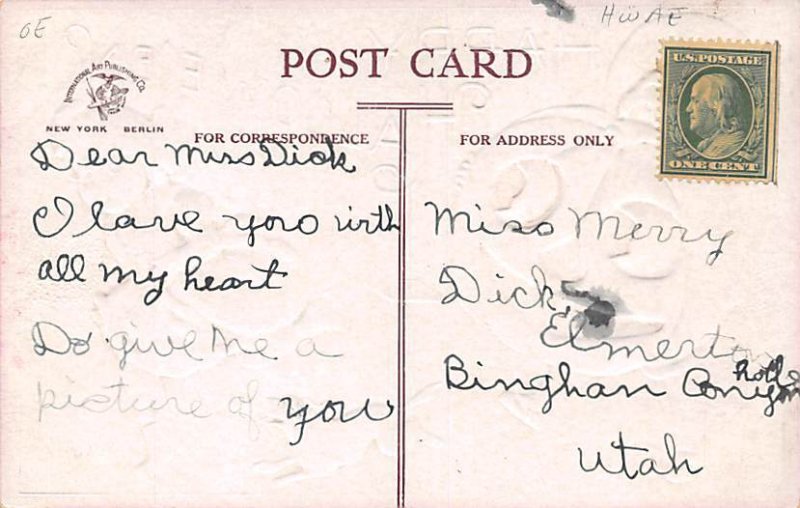 OE
HWAE
U.S. POSTAGE
ONE CENT
POST CARD
INTERNATIONAL ART PUBLISHING CO.
NEW YORK BERLIN
FOR CORRESPONDENCE
Dear Miss Dick
I lave yoro with
all my heart
Do give me a
picture of you
FOR ADDRESS ONLY
Miss Merry
Dick,
Elmerton
hotle
Binghan Conyon
Utah